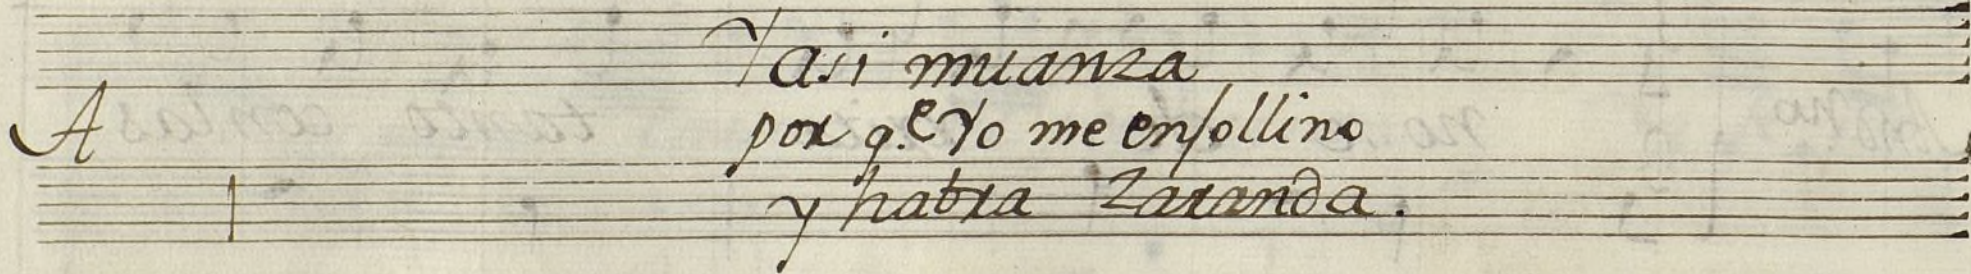 Y asi muanza
A por q.e Yo me ensollino
y habra Zaranda.